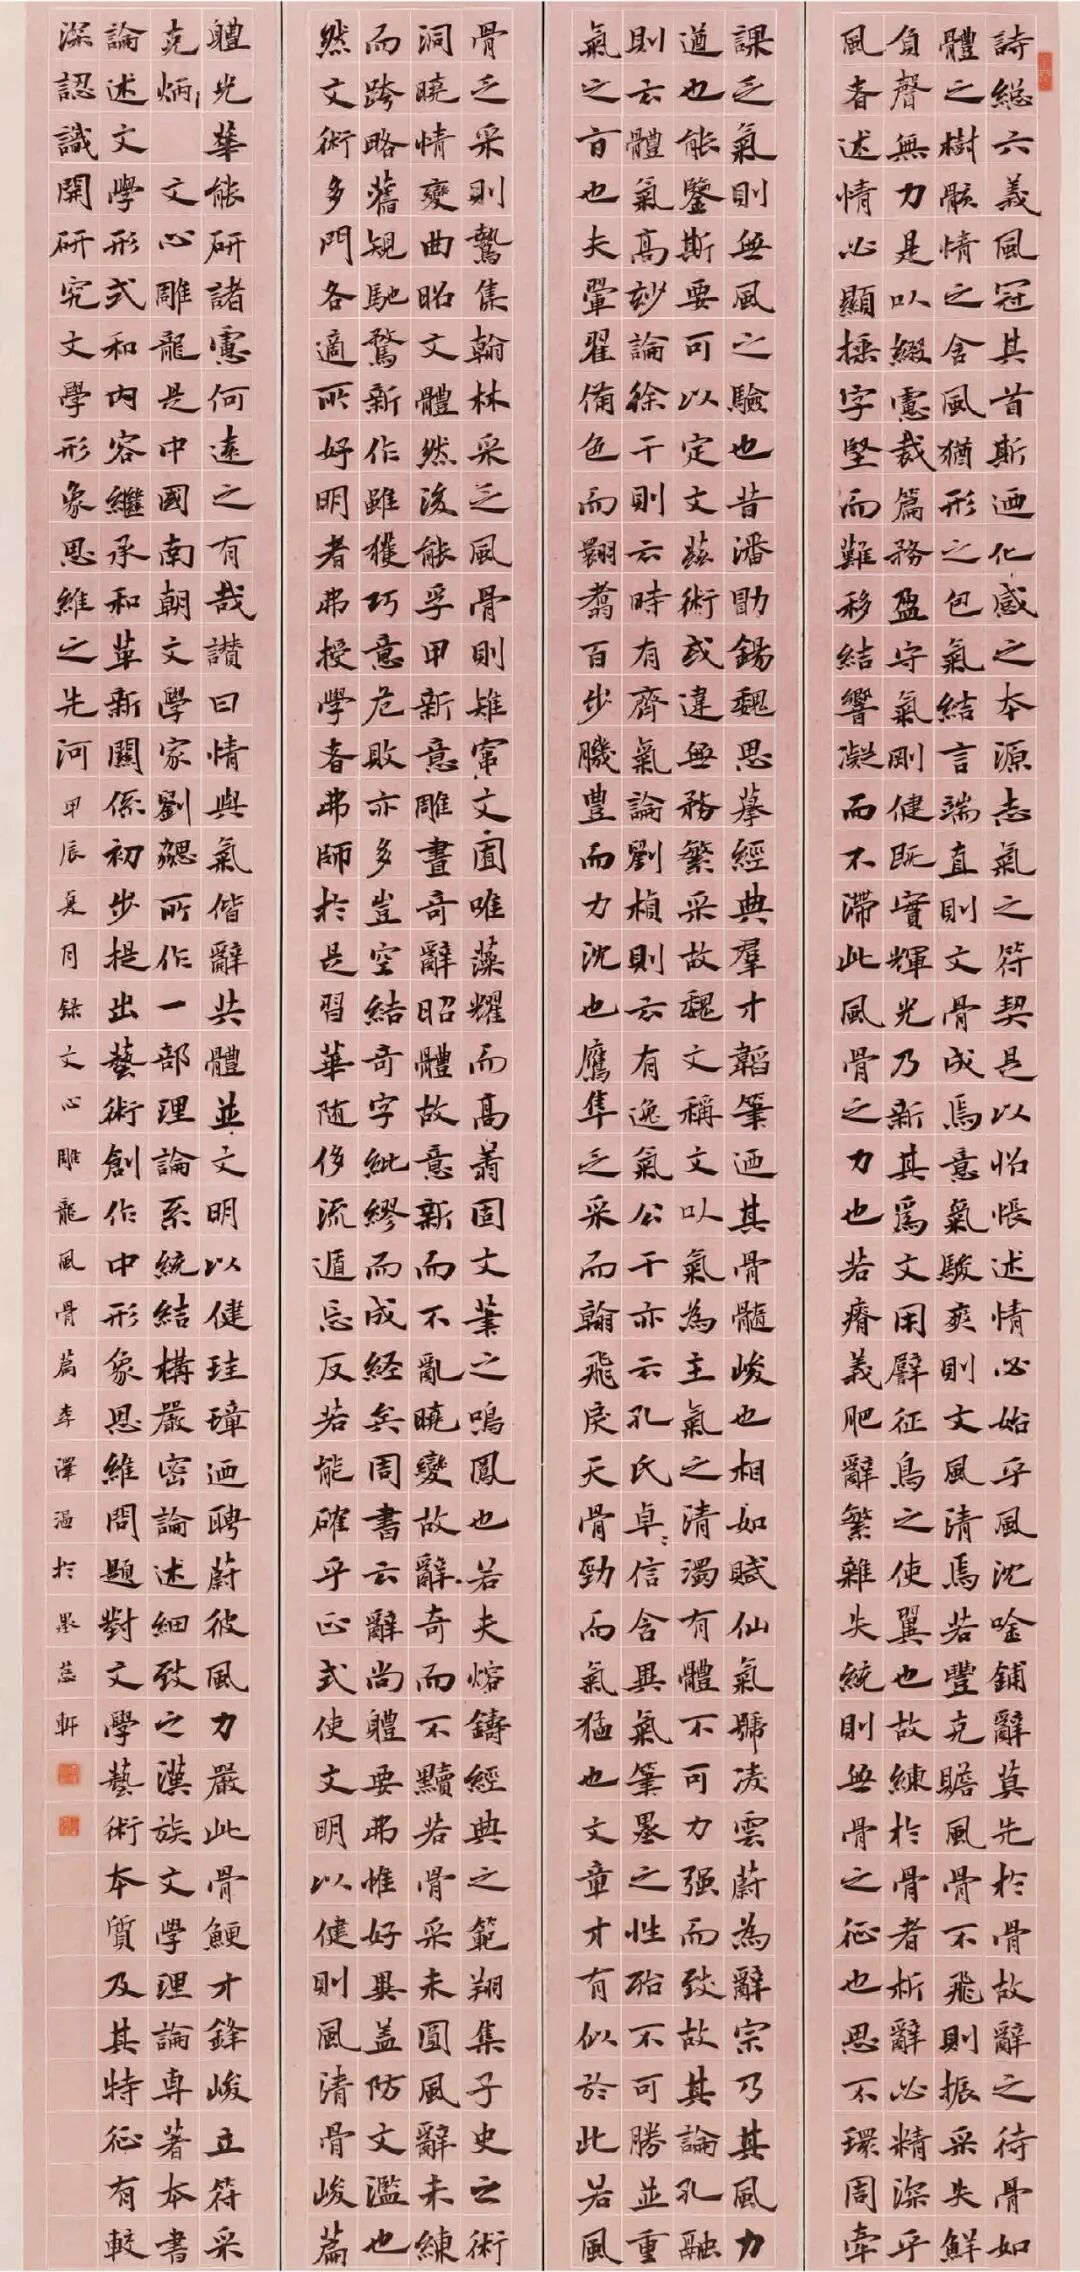 詩緫六義風冠其首斯迺化感之本源志氣之符契是以怊悵述情必始乎風沈唫鋪辭莫先於骨故辭之待骨如
體之樹骸情之含風猶形之包氣結言端直則文骨成焉意氣駿爽則文風清焉若豐克贍風骨不飛則振采失鮮
負聲無力是以綴慮裁篇務盈守氣剛健既實輝光乃新其爲文用譬征鳥之使翼也故練於骨者析辭必精深乎
風者述情必顯捶字堅而難移結響凝而不滯此風骨之力也若瘠義肥辭繁雜失統則無骨之征也思不環周牽
課乏氣則無風之驗也昔潘勖錫魏思摹經典羣才韜筆迺其骨髓峻也相如賦仙氣號淩雲蔚為辭宗乃其風力
遒也能鑒斯要可以定文茲術或違無務繁采故魏文稱文以氣為主氣之清濁有體不可力强而致故其論孔融
則云體氣高妙論徐干則云時有齊氣論劉楨則云有逸氣公干亦云孔氏卓々信含異氣筆墨之性殆不可勝並重
氣之旨也夫翬翟備色而翾翥百步肌豐而力沈也鷹隼乏采而翰飛戾天骨勁而氣猛也文章才有似於此若風
骨乏采則鷙集翰林采乏風骨則雉竄文囿唯藻耀而高翥固文筆之鳴鳳也若夫熔鑄經典之範翔集子史之術
洞曉情變曲昭文體然後能孚甲新意雕畫奇辭昭體故意新而不亂曉變故辭奇而不黷若骨采未圓風辭未練
而跨略舊規馳騖新作雖獲巧意危敗亦多豈空結奇字紕繆而成経矣周書云辭尚軆要弗惟好異盖防文濫也
然文術多門各適所好明者弗授學者弗師於是習華随侈流遁忘反若能確乎正式使文明以健則風清骨峻篇
軆光華能研諸慮何遠之有哉讃曰情與氣偕辭共體並文明以健珪璋迺聘蔚彼風力嚴此骨鯁才鋒峻立符采
克炳 文心雕龍是中國南朝文學家劉勰所作一部理論系統結構嚴密論述細致之漢族文學理論專著本書
論述文學形式和内容繼承和革新關係初步提出藝術創作中形象思維問題對文學藝術本質及其特征有較
深認識開研究文學形象思維之先河 甲辰夏月録文心雕龍風骨篇李澤温於墨蕊軒